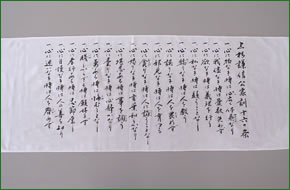 上杉謙信公家訓十六ヶ条
一心に物なき時は心広く体泰なり
一心に我儘なき時は愛敬失わず
一心に欲なき時は義理を行う
一心に私なき時は疑うことなし
一心に驕りなき時は人を教う
一心に誤りなき時は人を畏れず
一心に邪見なき時は人を育つる
一心に貪りなき時は人に諂うことなし
一心に怒りなき時は言葉和らかなり
一心に堪忍ある時は事を調う
一心に曇りなき時は心静かなり
一心に勇みある時は悔やむことなし
一心賤しからざる時は願い好まず
一心に孝行ある時は忠節厚し
一心に自慢なき時は人の善を知り
一心に迷いなき時は人を咎めず